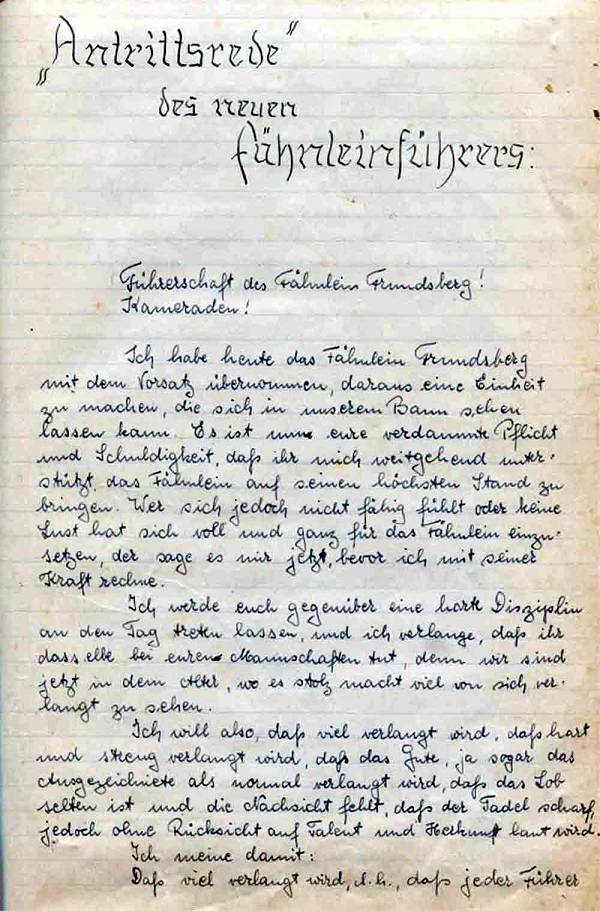 „Antrittsrede“
des neuen
Fähnleinführers:
Führerschaft des Fähnlein Frundsberg!
Kameraden!
Ich habe heute das Fähnlein Frundsberg
mit dem Vorsatz übernommen, daraus eine Einheit
zu machen, die sich in unserem Bann sehen
lassen kann. Es ist nun eure verdammte Pflicht
und Schuldigkeit, daß ihr mich weitgehend unter-
stützt, das Fähnlein auf seinen höchsten Stand zu
bringen. Wer sich jedoch nicht fähig fühlt oder keine
Lust hat sich voll und ganz für das Fähnlein einzu-
setzen, der sage es mir jetzt, bevor ich mit seiner
Kraft rechne.
Ich werde euch gegenüber eine harte Disziplin
an den Tag treten lassen, und ich verlange, daß ihr
dasselbe bei euren Mannschaften tut, denn wir sind
jetzt in dem Alter, wo es stolz macht viel von sich ver-
langt zu sehen.
Ich will also, daß viel verlangt wird, daß hart
und streng verlangt wird, daß das Gute, ja sogar das
Ausgezeichnete als normal verlangt wird, daß das Lob
selten ist und die Nachsicht fehlt, daß der Tadel scharf,
jedoch ohne Rücksicht auf Talent und Herkunft laut wird.
Ich meine damit:
Daß viel verlangt wird, d.h., daß jeder Führer